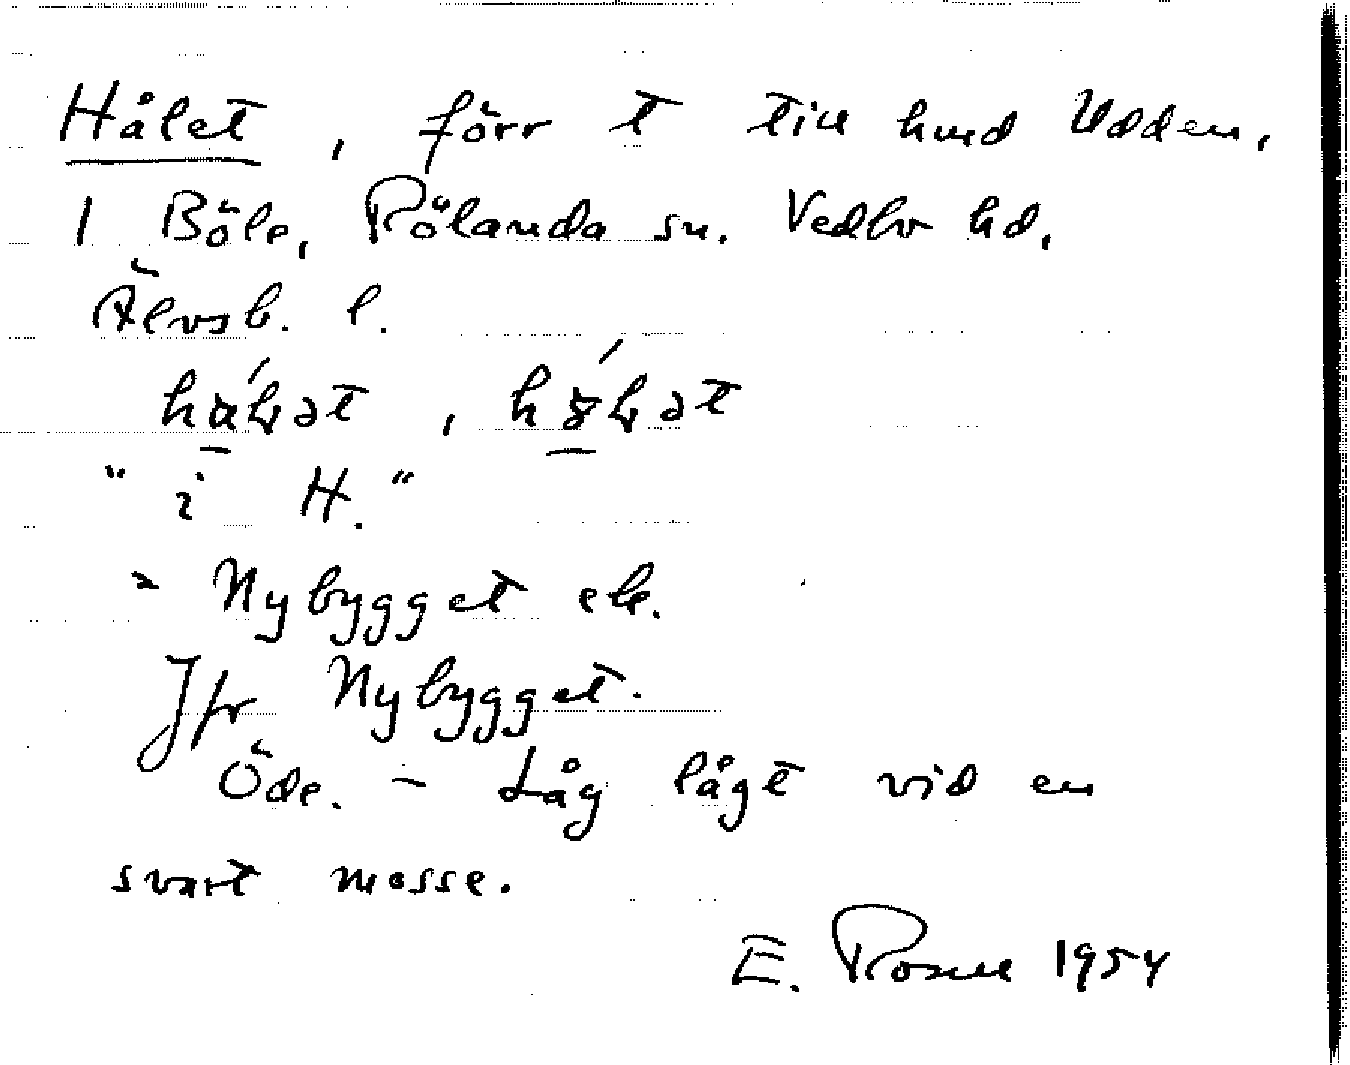 Hålet, förr t till hmd Udden,
1 Böle, Rölanda sn. Vedbo hd.
Älvsb. l.
" i H. "
= Nybygget el.
Jfr Nybygget.
Öde. - Låg lågt vid en
svart mosse.
E. Rosell 1954